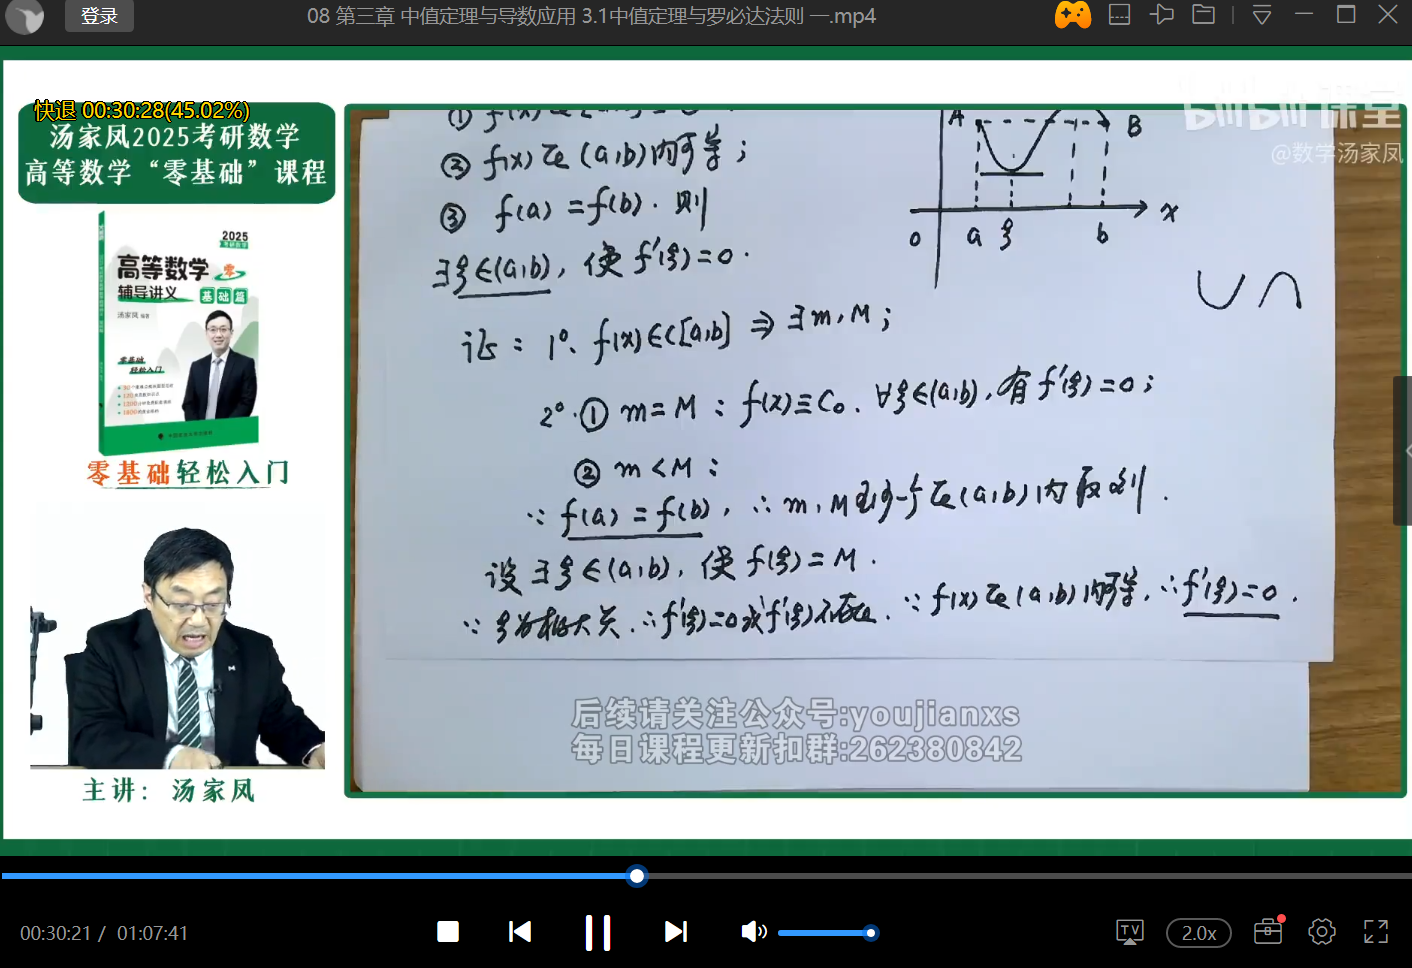 登录
08 第三章 中值定理与导数应用 3.1中值定理与罗必达法则 一.mp4
快退 00:30:28(45.02%)
汤家凤2025考研数学
高等数学“零基础”课程
2025
高等数学
零
辅导讲义
基础篇
汤家凤 编著
零基础
轻松入门
零基础轻松入门
主讲：汤家凤
bilibili课堂
@数学汤家凤
② f(x)在(a,b)内可导；
③ f(a)=f(b). 则
∃ξ∈(a,b), 使 f'(ξ)=0.
A B
0 a ξ b x
证：1°. f(x)∈C[a,b] ⇒ ∃m,M；
2°. ① m=M：f(x)≡C₀. ∀ξ∈(a,b), 有 f'(ξ)=0；
② m<M：
∵ f(a)=f(b), ∴ m,M至少一个在(a,b)内取到.
设∃ξ∈(a,b), 使 f(ξ)=M.
∵ ξ为极大点. ∴ f'(ξ)=0或f'(ξ)不存在. ∵ f(x)在(a,b)内可导, ∴ f'(ξ)=0.
后续请关注公众号:youjianxs
每日课程更新扣群:262380842
00:30:21 / 01:07:41
TV
2.0x